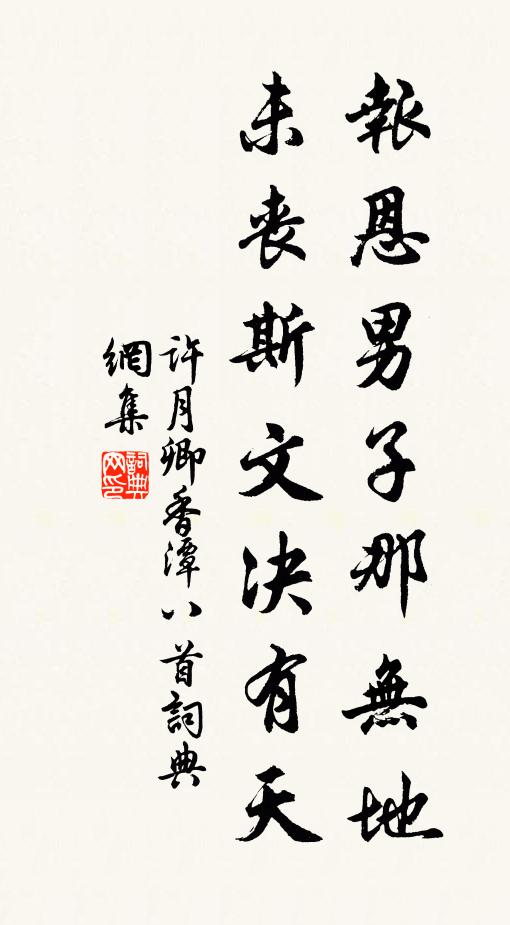 報恩男子那無地
未喪斯文決有天
許月卿香潭八首詞典
網集
詞典網印